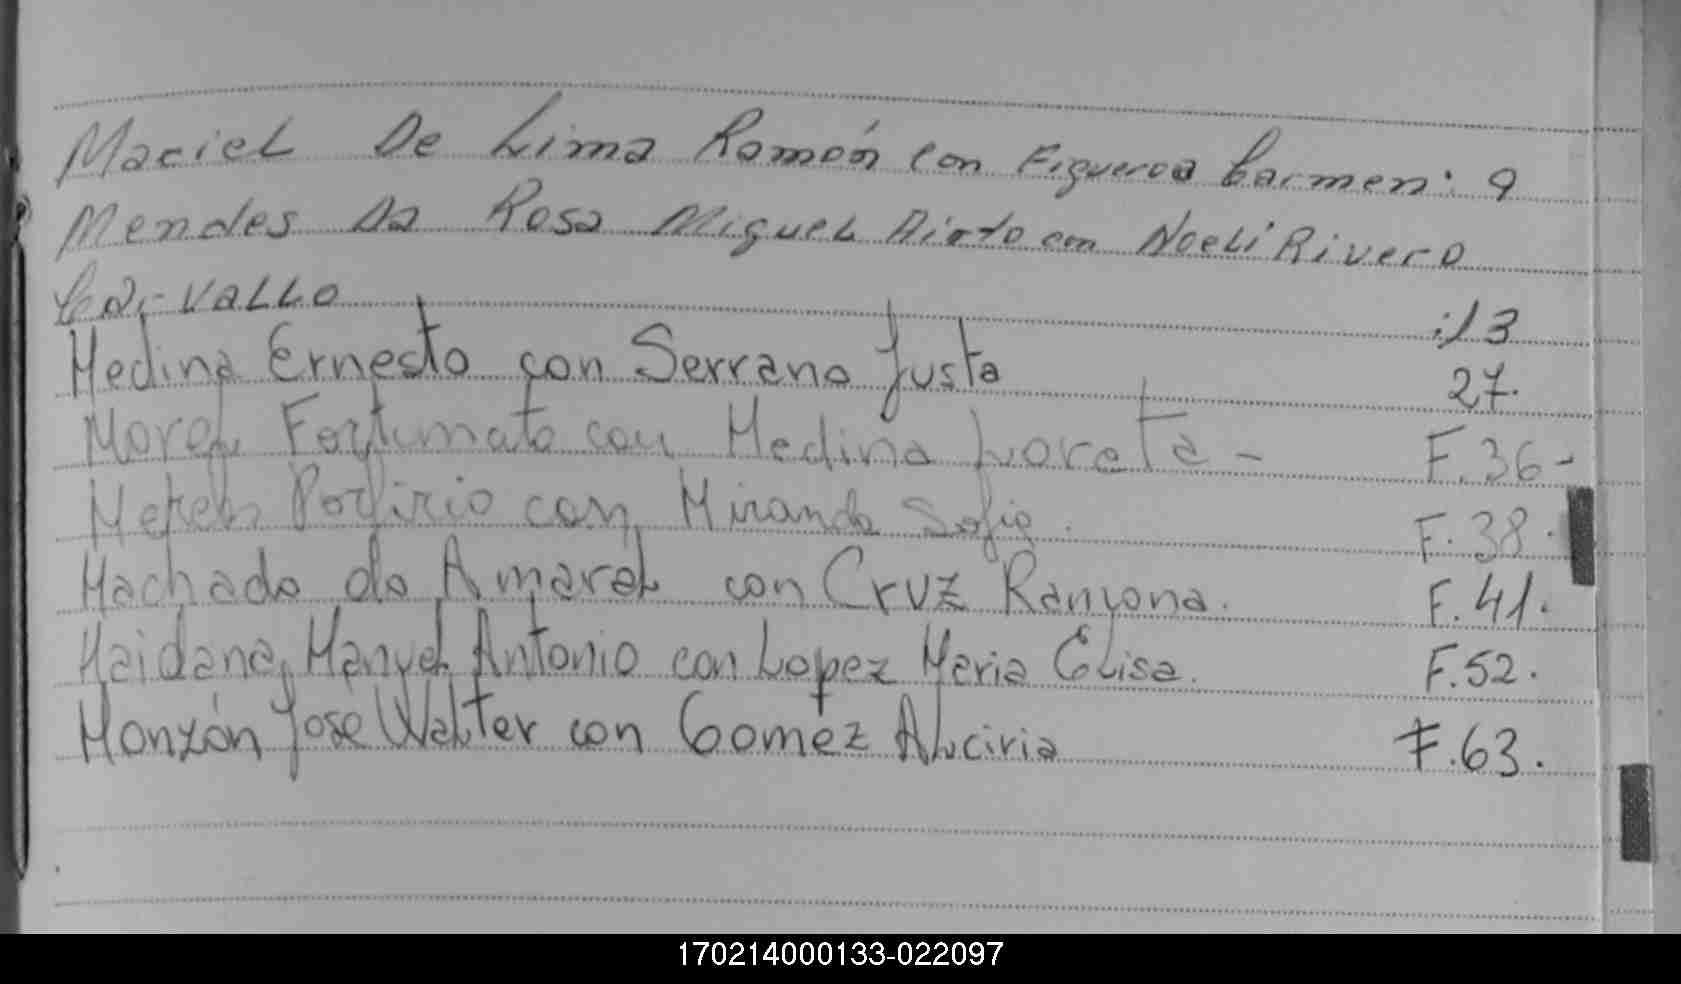 Maciel De Lima Ramón con Figueroa Carmen: 9
Mendes Da Rosa Miguel con Noeli Rivero
Carvallo :13
Medina Ernesto con Serrano Justa 27.
Morel Fortunato con Medina Loreta - F.36-
Porfirio con Miranda Sofia. F.38.
Machado do Amaral con Cruz Ramona. F.41.
Maidana, Manuel Antonio con Lopez Maria Elisa. F.52.
Monzón Jose Walter con Gomez Alvciria F.63.
170214000133-022097